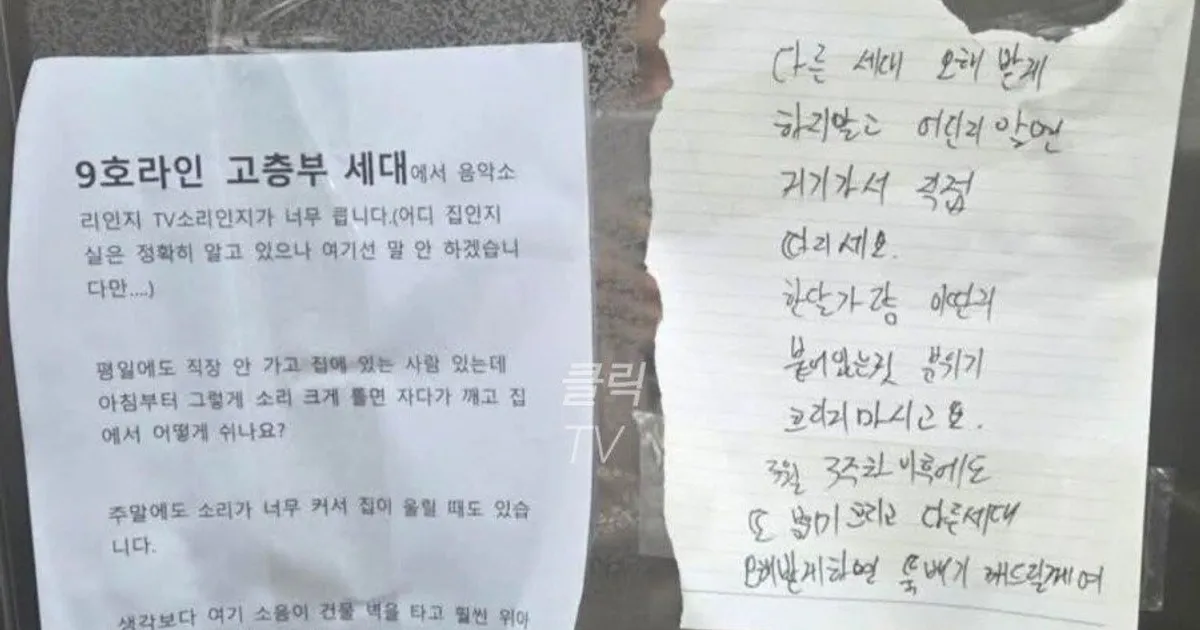 9호라인 고층부 세대에서 음악소
리인지 TV소리인지가 너무 큽니다.(어디 집인지
실은 정확히 알고 있으나 여기선 말 안 하겠습니
다만....)
평일에도 직장 안 가고 집에 있는 사람 있는데
아침부터 그렇게 소리 크게 틀면 자다가 깨고 집
에서 어떻게 쉬나요?
주말에도 소리가 너무 커서 집이 울릴 때도 있습
니다.
생각보다 여기 소음이 건물 벽을 타고 훨씬 위아
다른 세대 오해 받게
하지말고 어딘지 알면
거기가서 직접
떠리세요.
한달가량 이딴거
붙어있는것 분위기
흐리지마시고요.
3월 3주차 이후에도
또 분위기 흐리고 다른세대
오해받게하면 뚝배기 깨드릴게여
클릭
TV